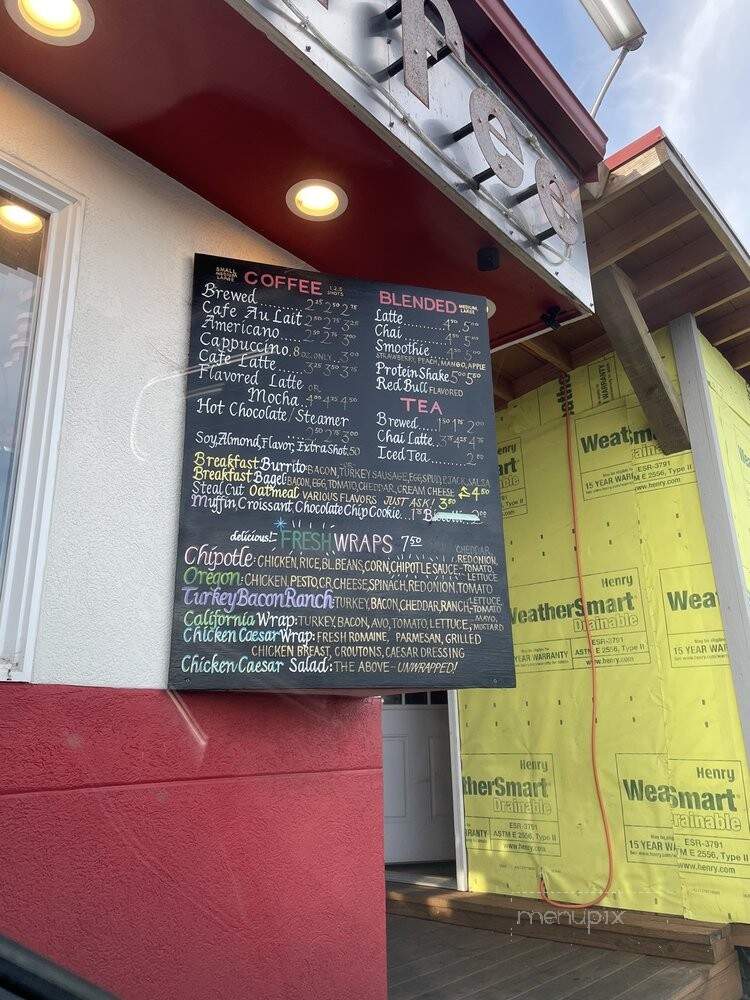 ffee
SMALL
MEDIUM
LARGE
COFFEE 1,2,3 SHOTS
Brewed......2²⁵ 2⁵⁰ 2⁷⁵
Cafe Au Lait 2⁵⁰ 2⁷⁵ 3²⁵
Americano.....2⁵⁰ 2⁷⁵ 3⁰⁰
Cappuccino.8 OZ. ONLY...3⁰⁰
Cafe Latte.....3²⁵ 3⁵⁰ 3⁷⁵
Flavored Latte OR
Mocha..4⁰⁰ 4²⁵ 4⁵⁰
Hot Chocolate/Steamer
2⁵⁰ 2⁷⁵ 3⁰⁰
Soy, Almond, Flavor, Extra Shot .50
BLENDED MEDIUM LARGE
Latte.........4⁵⁰ 5⁰⁰
Chai.........4⁵⁰ 5⁰⁰
Smoothie....4⁵⁰ 5⁰⁰
STRAWBERRY, PEACH, MANGO, APPLE
Protein Shake 5⁰⁰ 5⁵⁰
Red Bull FLAVORED
TEA
Brewed....1⁵⁰ 1⁷⁵ 2⁰⁰
Chai Latte..3⁷⁵ 4²⁵ 4⁷⁵
Iced Tea........2⁰⁰
Breakfast Burrito BACON, TURKEY SAUSAGE, EGG, SPUD, P.JACK, SALSA
Breakfast Bagel BACON, EGG, TOMATO, CHEDDAR, CREAM CHEESE 4⁵⁰
Steal Cut Oatmeal VARIOUS FLAVORS JUST ASK! 3⁵⁰
Muffin Croissant Chocolate Chip Cookie...1⁷⁵
delicious! FRESH WRAPS 7⁵⁰
Chipotle: CHICKEN, RICE, BL. BEANS, CORN, CHIPOTLE SAUCE, CHEDDAR, RED ONION, TOMATO, LETTUCE
Oregon: CHICKEN, PESTO, CR. CHEESE, SPINACH, RED ONION, TOMATO
Turkey Bacon Ranch: TURKEY, BACON, CHEDDAR, RANCH, LETTUCE TOMATO
California Wrap: TURKEY, BACON, AVO, TOMATO, LETTUCE, MAYO, MUSTARD
Chicken Caesar Wrap: FRESH ROMAINE, PARMESAN, GRILLED
CHICKEN BREAST, CROUTONS, CAESAR DRESSING
Chicken Caesar Salad: THE ABOVE – UNWRAPPED!
Weat
15 YEAR WARRANTY
ESR-3791
ASTM E 2556, Type II
www.henry.com
Henry
WeatherSmart
Drainable
ESR-3791
15 YEAR WARRANTY ASTM E 2556, Type II
www.henry.com
Wea
15 YEAR WAR
www.henry.com
Henry
therSmart
Drainable
ESR-3791
RANTY ASTM E 2556, Type II
www.henry.com
Henry
Wea Smart
rainable
ESR-3791
15 YEAR WA TM E 2556, Type II
www.henry.com
menupix